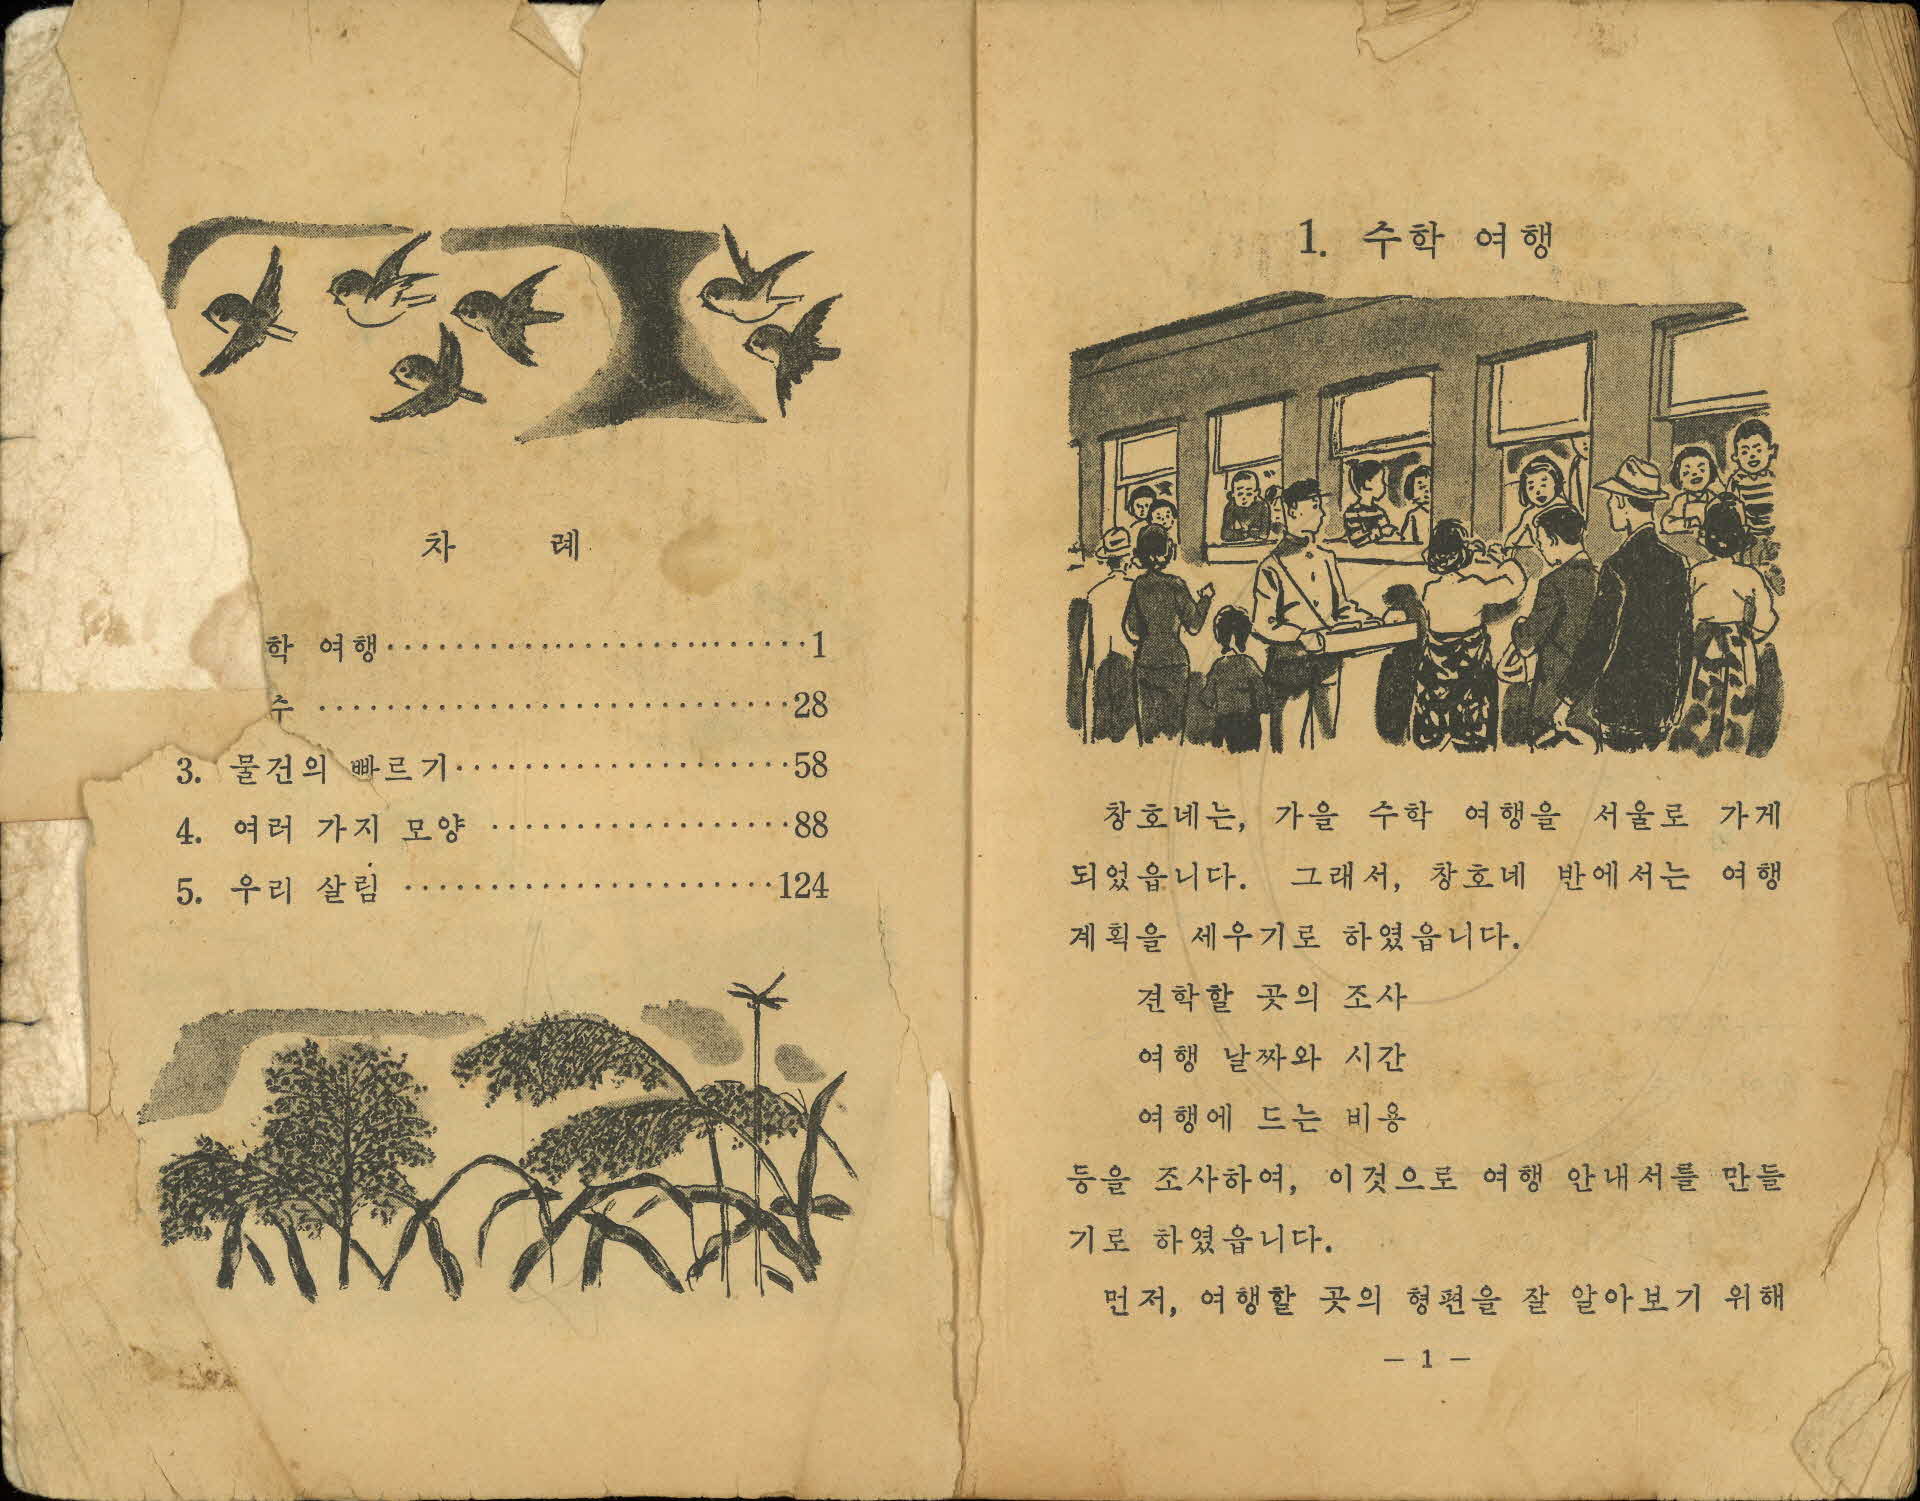 차 례
학 여행 1
수 28
3. 물건의 빠르기 58
4. 여러 가지 모양 88
5. 우리 살림 124
1. 수학 여행
창호네는, 가을 수학 여행을 서울로 가게
되었읍니다. 그래서, 창호네 반에서는 여행
계획을 세우기로 하였읍니다.
견학할 곳의 조사
여행 날짜와 시간
여행에 드는 비용
등을 조사하여, 이것으로 여행 안내서를 만들
기로 하였읍니다.
먼저, 여행할 곳의 형편을 잘 알아보기 위해
— 1 —